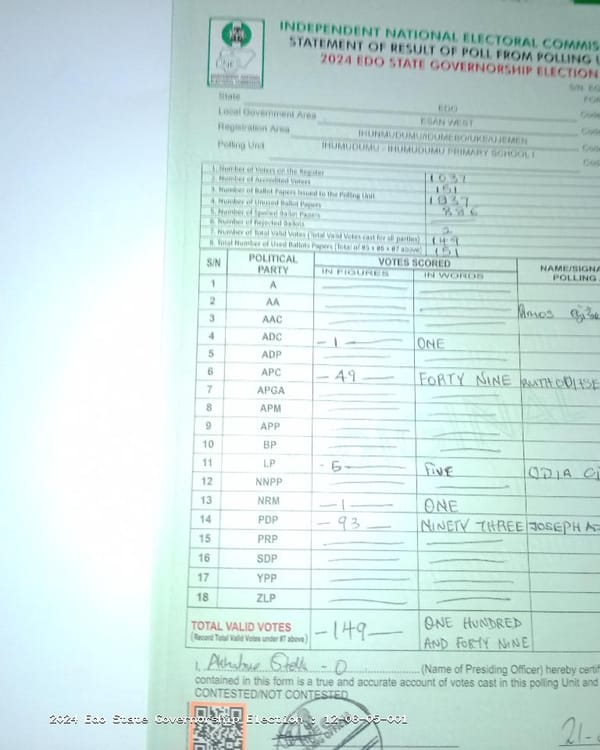 INDEPENDENT NATIONAL ELECTORAL COMMIS
STATEMENT OF RESULT OF POLL FROM POLLING U
2024 EDO STATE GOVERNORSHIP ELECTION
State EDO
Local Government Area ESAN WEST
Registration Area IHUNMUDUMU/IDUMEBO/UKE/UJEMEN
Polling Unit IHUMUDUMU - IHUMUDUMU PRIMARY SCHOOL I
1. Number of Voters on the Register 1037
2. Number of Accredited Voters 151
3. Number of Ballot Papers Issued to the Polling Unit 1037
4. Number of Unused Ballot Papers 886
5. Number of Spoiled Ballot Papers
6. Number of Rejected Ballots 2
7. Number of Total Valid Votes (Total Valid Votes cast for all parties) 149
8. Total Number of Used Ballots Papers (Total of #5 + #6 + #7 above) 151
S/N POLITICAL PARTY VOTES SCORED NAME/SIGNA
IN FIGURES IN WORDS POLLING
1 A
2 AA
3 AAC Amos
4 ADC -1- ONE
5 ADP
6 APC -49- FORTY NINE RUTH
7 APGA
8 APM
9 APP
10 BP
11 LP -5- FIVE ODIA
12 NNPP
13 NRM -1- ONE
14 PDP -93- NINETY THREE JOSEPH A
15 PRP
16 SDP
17 YPP
18 ZLP
TOTAL VALID VOTES -149- ONE HUNDRED
(Record Total Valid Votes under #7 above) AND FORTY NINE
I, (Name of Presiding Officer) hereby certif
contained in this form is a true and accurate account of votes cast in this polling Unit and
CONTESTED/NOT CONTESTED
2024 Edo State Governorship Election : 12-08-05-001
21-